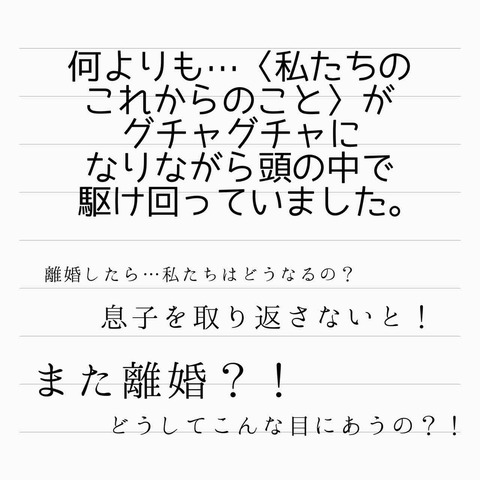 何よりも…〈私たちの
これからのこと〉が
グチャグチャに
なりながら頭の中で
駆け回っていました。
離婚したら…私たちはどうなるの？
息子を取り返さないと！
また離婚？！
どうしてこんな目にあうの？！